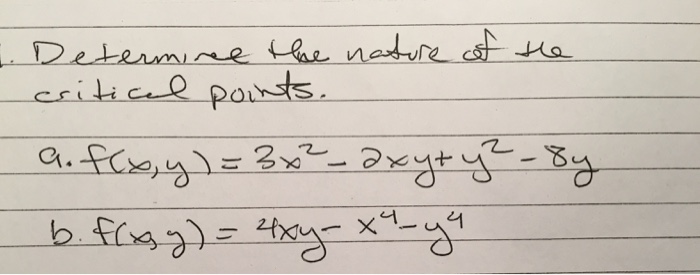 . Determine the nature of the
critical points.
a. f(x,y) = 3x² - 2xy + y² - 8y
b. f(x,y) = 4xy - x⁴ - y⁴